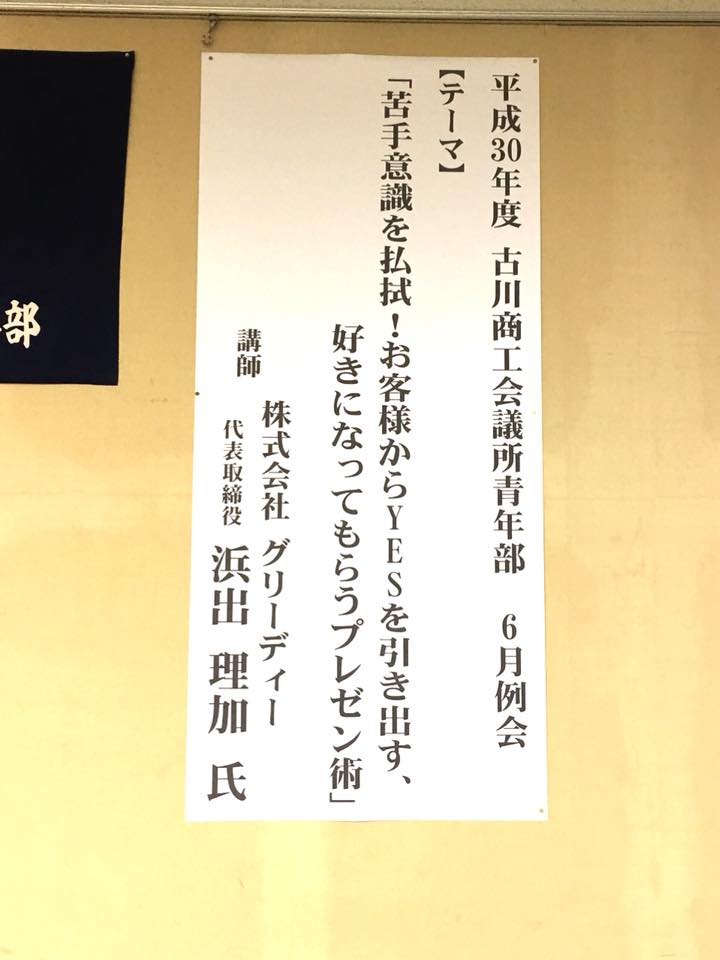 平成30年度 古川商工会議所青年部 6月例会
【テーマ】
「苦手意識を払拭!お客様からYESを引き出す、
好きになってもらうプレゼン術」
講師 株式会社 グリーディー
代表取締役 浜出 理加 氏
部